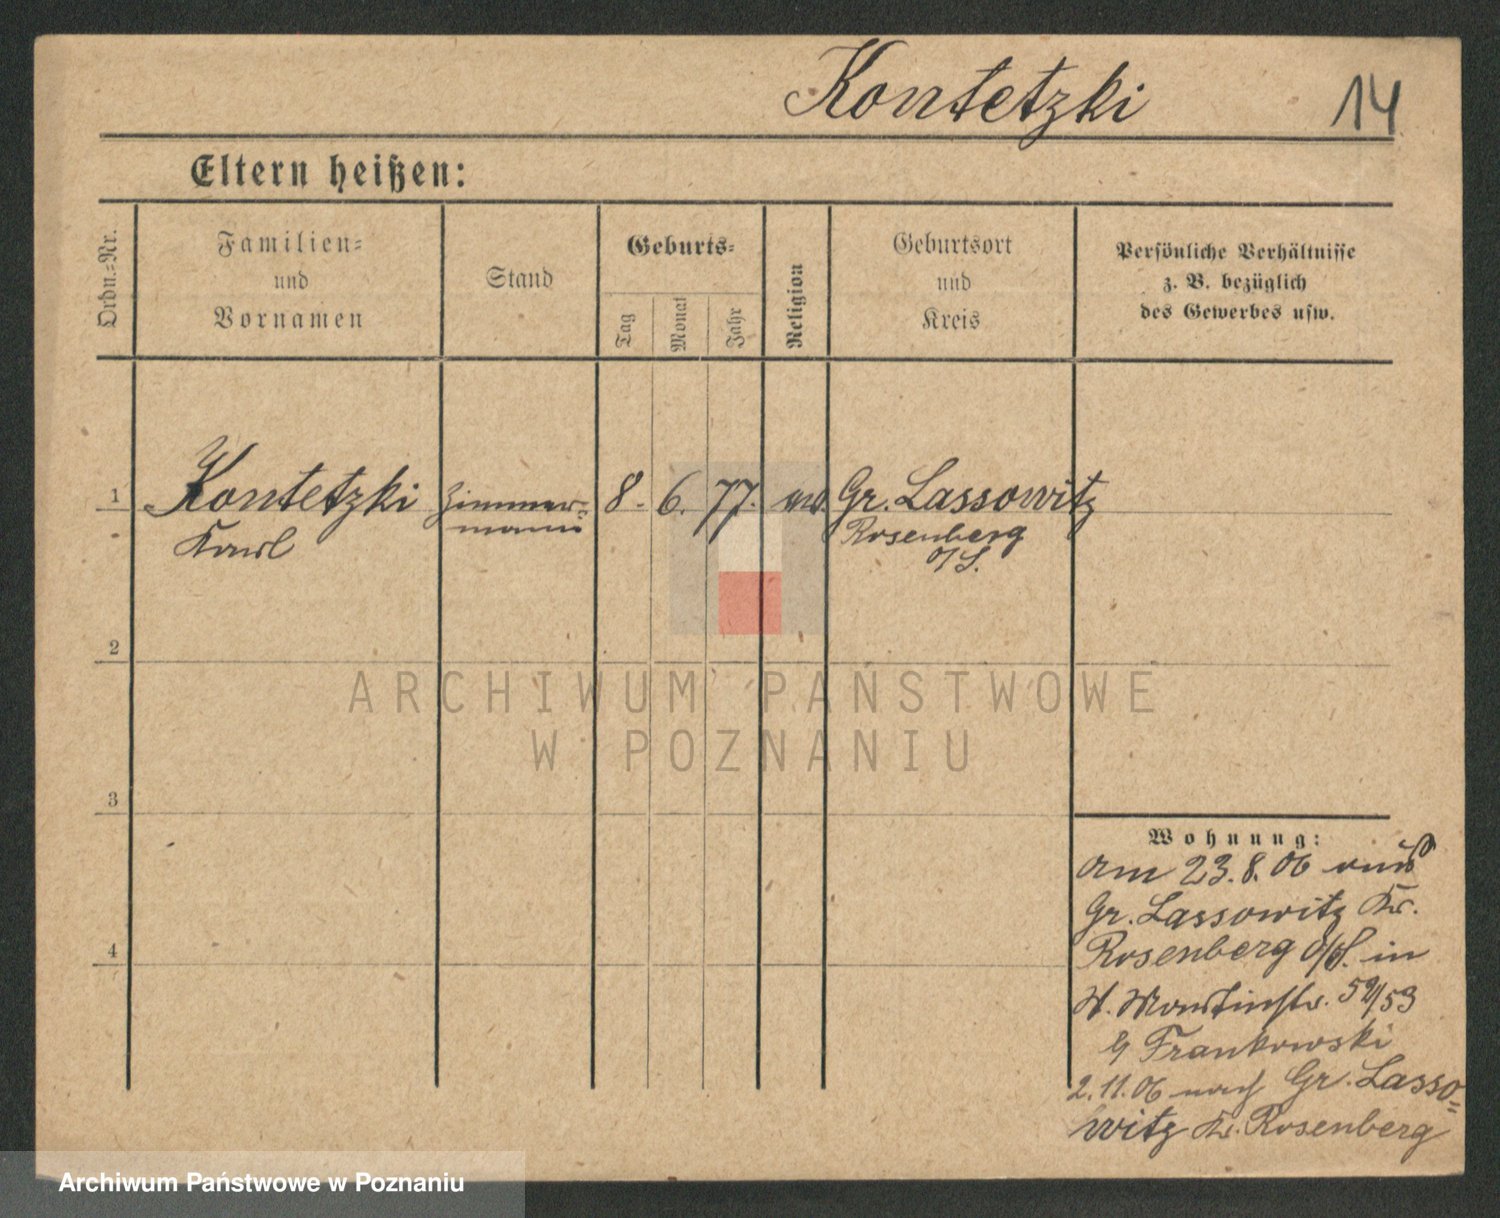 Kontetzki 14
Eltern heißen:
Ordn.-Nr.
Familien-
und
Vornamen
Stand
Geburts-
Tag
Monat
Jahr
Religion
Geburtsort
und
Kreis
Persönliche Verhältnisse
z. B. bezüglich
des Gewerbes usw.
1 Kontetzki Zimmer- 8. 6. 77. Gr. Lassowitz
Karl mann Rosenberg
o/S.
2
ARCHIWUM PAŃSTWOWE
W POZNANIU
3
Wohnung:
am 23.8.06 aus
Gr. Lassowitz Kr.
4
Rosenberg o/S. in
St. Martinstr. 52/53
b/ Frankowski
2.11.06 nach Gr. Lasso-
witz Kr. Rosenberg
Archiwum Państwowe w Poznaniu